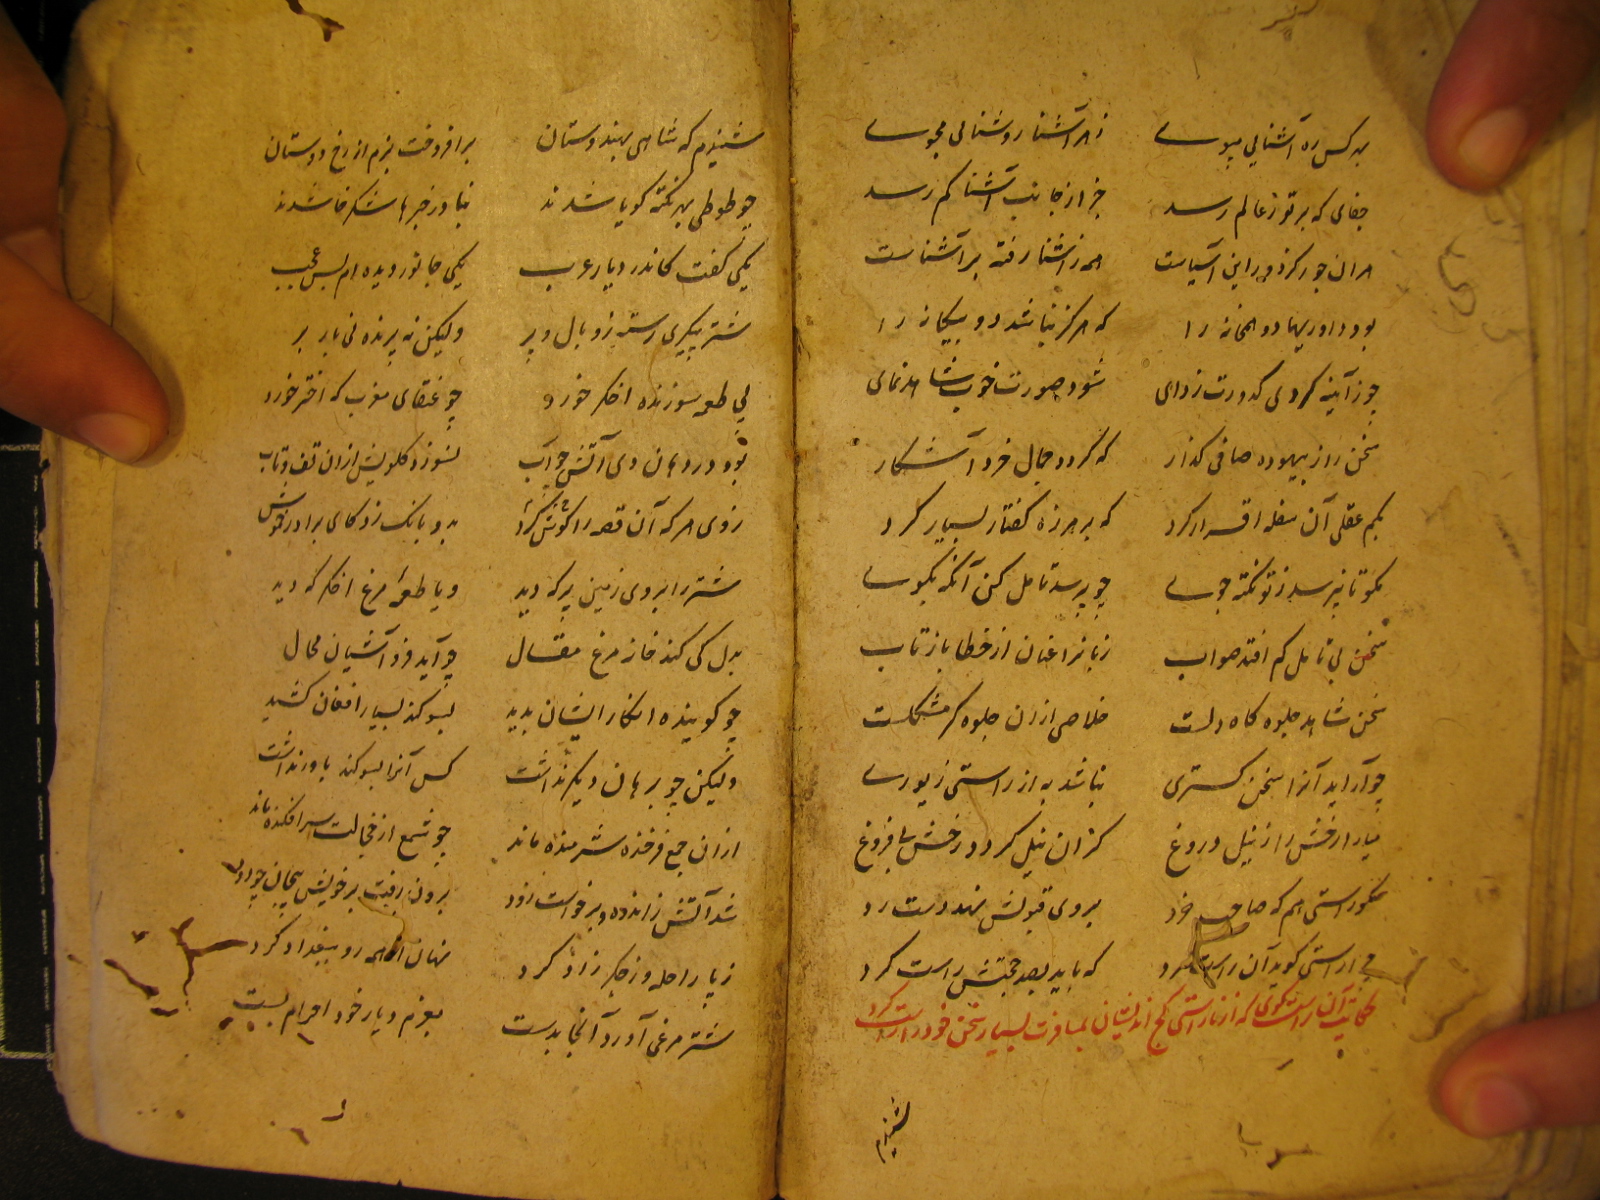 بهر کس ره آشنایی مپوی ز هر آشنا روشنایی مجوی
جفای که بر تو ز عالم رسد جز از جانب آشنا کم رسد
هر آن جور کز دور این آسیاست همه ز آشنا رفته بر آشناست
بود داوریها دو همخانه را که هرگز نباشد دو بیگانه را
چو ز آینه کردی کدورت زدای شود صورت خوب شاهد نمای
سخن را ز بیهوده صافی گذار که گردد جمال خرد آشکار
بکم عقلی آن سفله اقرار کرد که بر هرزه گفتار بسیار کرد
مگو تا نپرسد ز تو نکته جوی چو پرسد تامل کن آنگه بگوی
سخن بی تامل کم افتد صواب زبانرا عنان از خطا باز تاب
سخن شاهد جلوه گاه دلست خلاصی از آن جلوه گر مشکلست
چو آراید آنرا سخن گستری نباشد به از راستی زیوری
میار ار خش را ز نیل دروغ کز آن نیل گردد رخش بی فروغ
مگو راستی هم که صاحب خرد بروی قبولش نهد دست رد
چو از راستی گوید آن راست مرد که باید بصد حجتش راست کرد
حکایت آن راستگوی که از ناراستی کج اندیشان بمسافرت بسیار سخن خود را راست کرد
شنیدم
شنیدم که شاهی بهندوستان برافروخت بزم از رخ دوستان
چو طوطی بهر نکته گویا شدند بنادر خبرها شکرخا شدند
یکی گفت کاندر دیار عرب یکی جانور دیده ام بس عجب
شتر پیکری رسته زو بال و پر ولیکن نه پرنده نی باربر
پی طعمه سوزنده اخگر خورد چو عنقای مغرب که اختر خورد
بود در دهان وی آتش چو آب نسوزد گلویش از آن تف و تاب
ز وی هر که آن قصه را گوش کرد بدو بانگ زد کای برادر خموش
شتر را بروی زمین پر که دید و یا طعمه مرغ اخگر که دید
بدل کی کند خانه مرغ مقال چو آید فرو آشیان محال
چو گوینده انکار ایشان بدید بسوگند بسیار افغان کشید
ولیکن چو برهان دیگر نداشت کس آنرا بسوگند باور نداشت
از آن جمع فرخنده شرمنده ماند چو شمع از خجالت سر افکنده ماند
شد آتش ز اندوه و برخواست زود برون رفت بر خویش پیچان چو دود
ز پا راحله وز جگر زاد کرد نهان از همه رو ببغداد کرد
شتر مرغی آورد آنجا بدست بعزم دیار خود احرام بست